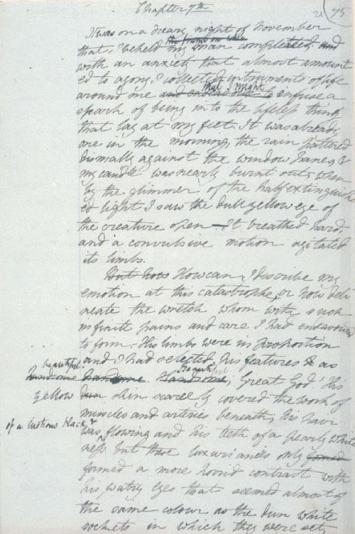 Chapter 7th
21 95
It was on a dreary night of November
the frame on whic
that I beheld my man completed and
with an anxiety that almost amount
ed to agony, I collected instruments of life
that I might
around me and endeavour to infuse a
spark of being into the lifeless thing
that lay at my feet. It was already
one in the morning, the rain pattered
dismally against the window panes &
my candle was nearly burnt out, when
by the glimmer of the half extinguish
ed light I saw the dull yellow eye of
the creature open — It breathed hard
and a convulsive motion agitated
its limbs.
But how How can I describe my
emotion at this catastrophe, or how deli
neate the wretch whom with such
infinite pains and care I had endeavoured
to form. His limbs were in proportion
and I had selected his features as
beautiful
handsome handsome Handsome, Beautiful Great God! his
yellow dun skin scarcely covered the work of
muscles and arteries beneath; his hair
of a lustrous black &
was flowing and his teeth of a pearly white
ness but these luxuriancies only formed
formed a more horrid contrast with
his watry eyes that seemed almost of
the same colour as the dun white
sockets in which they were set,